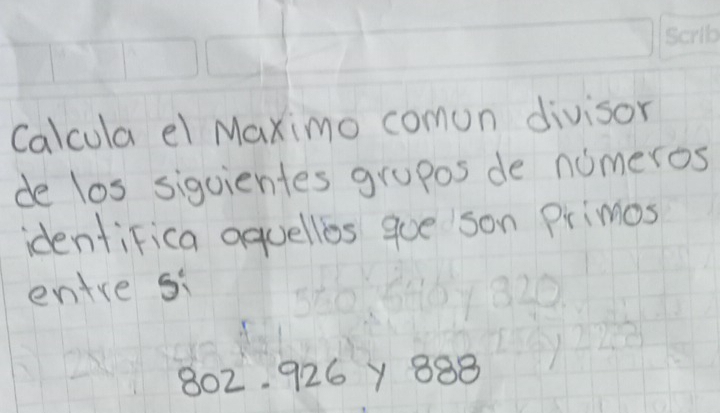 Scrib
Calcula el Maximo comun divisor
de los siguientes grupos de números
identifica aquellos que son Primos
entre sí
802.926 y 888